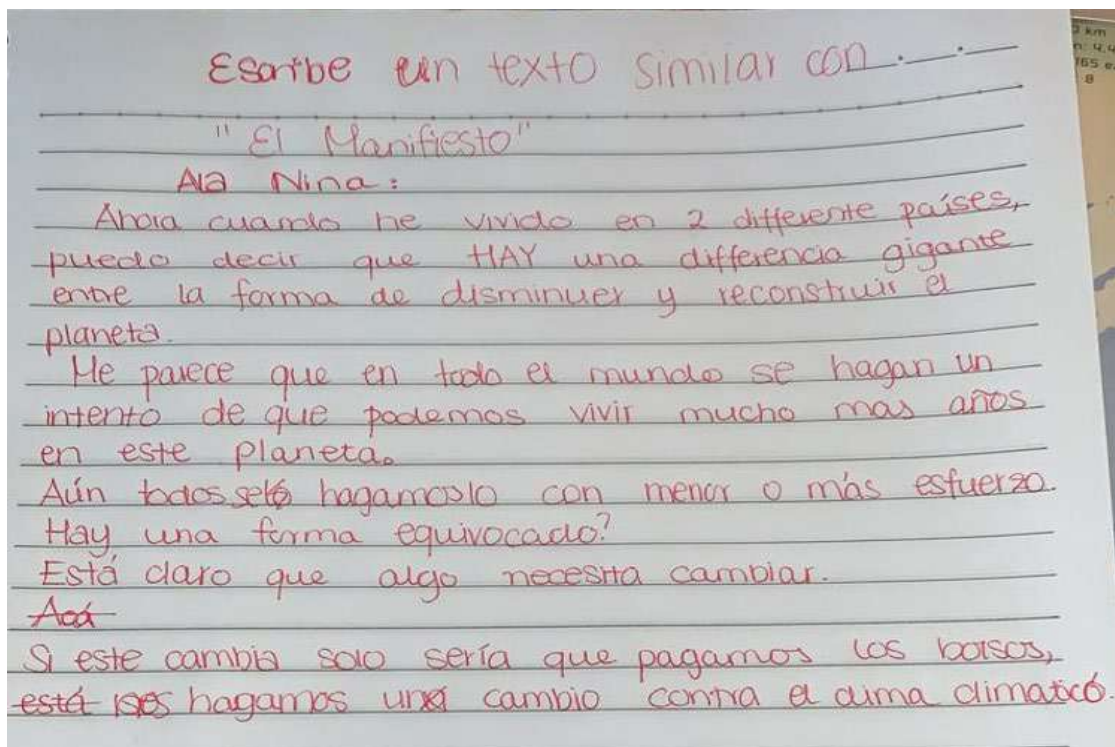 Escribe un texto similar con
"El Manifiesto"
Ala Nina:
Ahora cuando he vivido en 2 differente países,
puedo decir que HAY una differencia gigante
entre la forma de disminuer y reconstruir el
planeta.
Me parece que en todo el mundo se hagan un
intento de que podemos vivir mucho mas años
en este planeta.
Aún todos hagamoslo con menor o más esfuerzo.
Hay una forma equivocado?
Está claro que algo necesita cambiar.
Acá
Si este cambia solo sería que pagamos los bolsos,
está hagamos una cambio contra el clima climaticó
2 km
n: 4.4
165 e
8